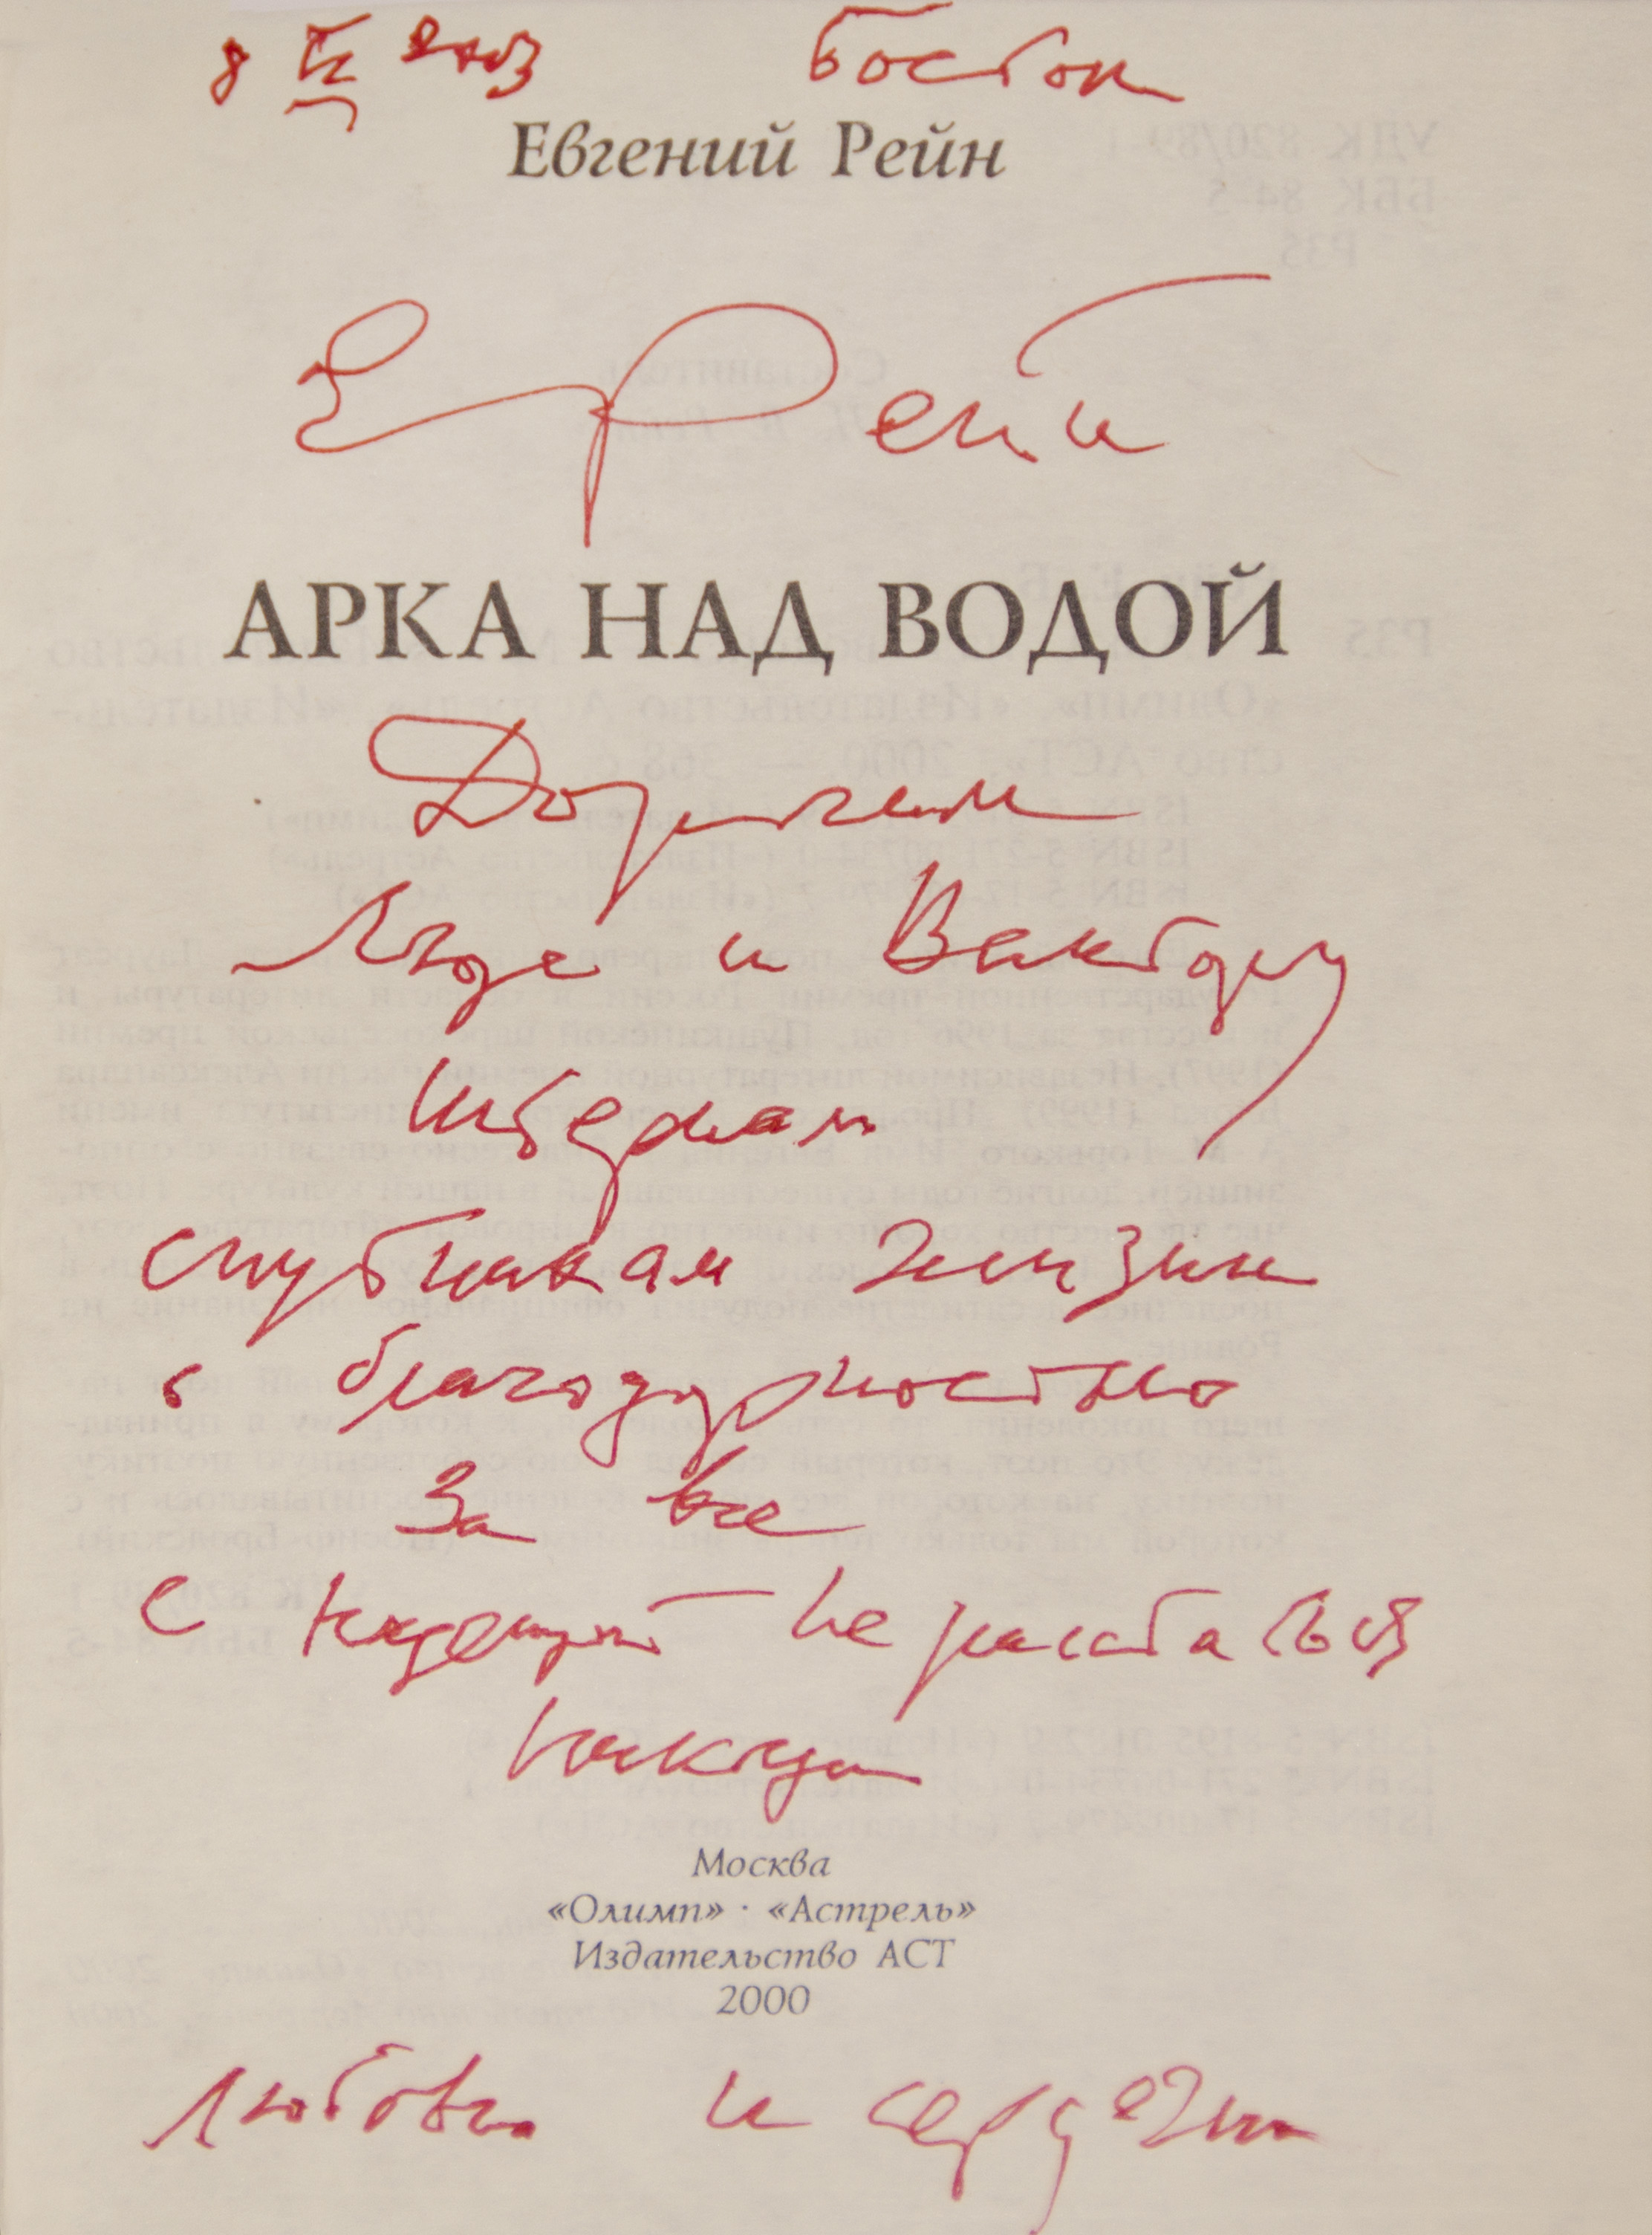 8 2003 Бостон
Евгений Рейн
Е Рейн
АРКА НАД ВОДОЙ
Дорогим
Люде и Виктору
Штернам
спутникам жизни
с благодарностью
за все
с надеждой не расстаться
никогда
Москва
«Олимп» · «Астрель»
Издательство АСТ
2000
любовью и